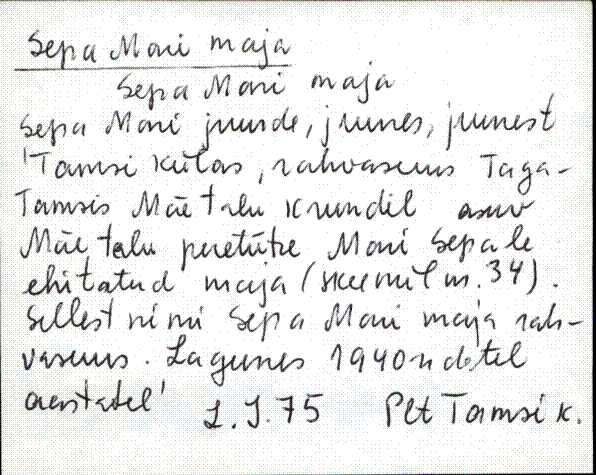 Sepa Mari maja
Sepa Mari maja
Sepa Mari juurde, juures, juurest
'Tamsi külas, rahvasuus Taga-
Tamsis Mäe talu krundil asuv
Mäe talu peretütre Mari Sepale
ehitatud maja (skeemil nr. 34).
Sellest nimi Sepa Mari maja rah-
vasuus. Lagunes 1940-ndatel
aastatel'
L.J.75 Plt Tamsi k.